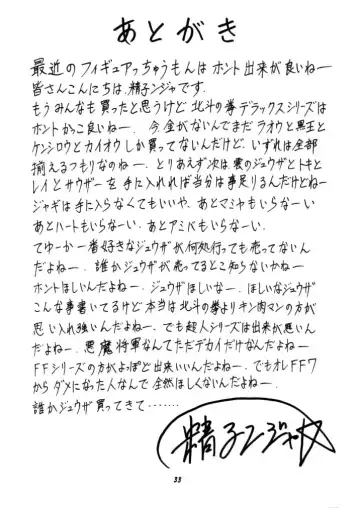 あとがき
最近のフィギュアっちゅうもんはホント出来が良いねー
皆さんこんにちは、精子ンジャです。
もうみんなも買ったと思うけど北斗の拳デラックスシリーズは
ホントかっこ良いねー。今金がないんでまだラオウと黒王と
ケンシロウとカイオウしか買ってないんだけど、いずれは全部
揃えるつもりなのねー。とりあえず次は雲のジュウザとトキと
レイとサウザーを手に入れれば当分は事足りるんだけどねー
ジャギは手に入らなくてもいいや、あとマミヤもいらなーい
あとハートもいらなーい、あとアミバもいらなーい。
てゆーか一番好きなジュウザが何処行っても売ってないん
だよねー。誰かジュウザが売ってるとこ知らないかねー
ホントほしいんだよねー、ジュウザほしいなー、ほしいなジュウザ
こんな事書いてるけど本当は北斗の拳よりキン肉マンの方が
思い入れ強いんだよねー。でも超人シリーズは出来が悪いん
だよねー、悪魔将軍なんてただデカイだけなんだよねー
FFシリーズの方がよっぽど出来いいんだよねー。でもオレFF7
からダメになった人なんで全然ほしくないんだよねー。
誰かジュウザ買ってきて・・・・・・・
精子ンジャ
33